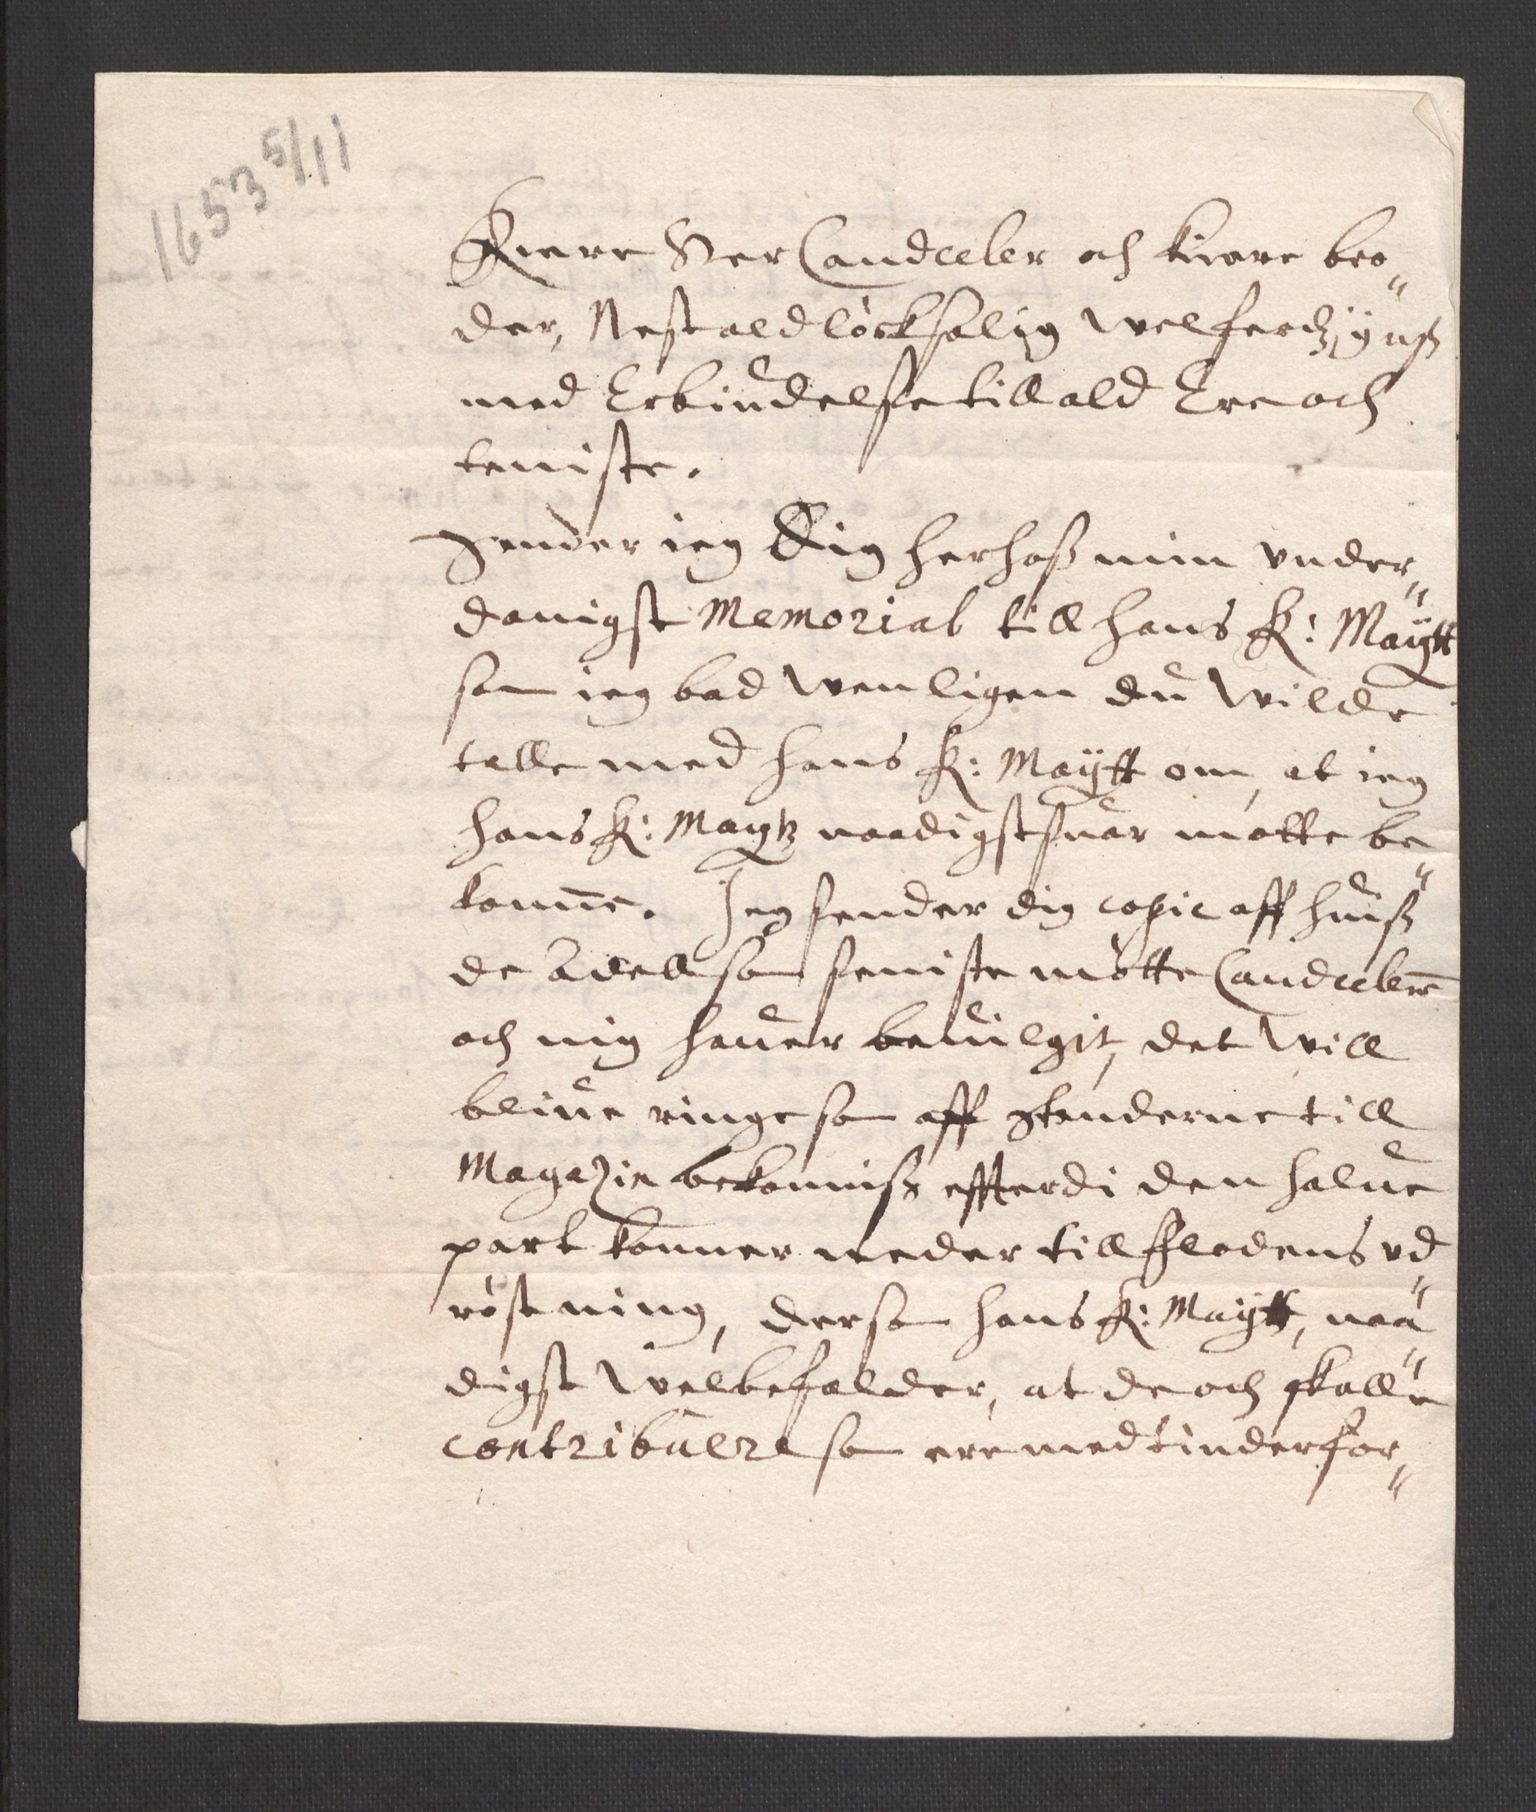 1653 5/11
Kiere Her Candceler och kiere bro„
der, Nest ald löcksalig welferdz ynsz
med Erbiudelse till ald Ere och
teniste.
Sender ieg Dig herhosz min vnder„
danigst Memorial till hans K: Maÿtt
som ieg bad wenligen du wilde
talle med hans K: Maÿtt om, at ieg
hans K: Maytz naadigst suar motte be„
komme. Jeg sender dig copie aff huisz
de Adell som seniste mötte Candceleren
och mig hauer beuilgit, det will
bliue ringe som aff Stenderne till
Magazin bekommisz effterdi den halue
part kommer neder till fflodens vd„
röstning, dersom hans K: Maytt, naa„
digst welbefalder, at de och skalle
contribuere som ere med tinder for„